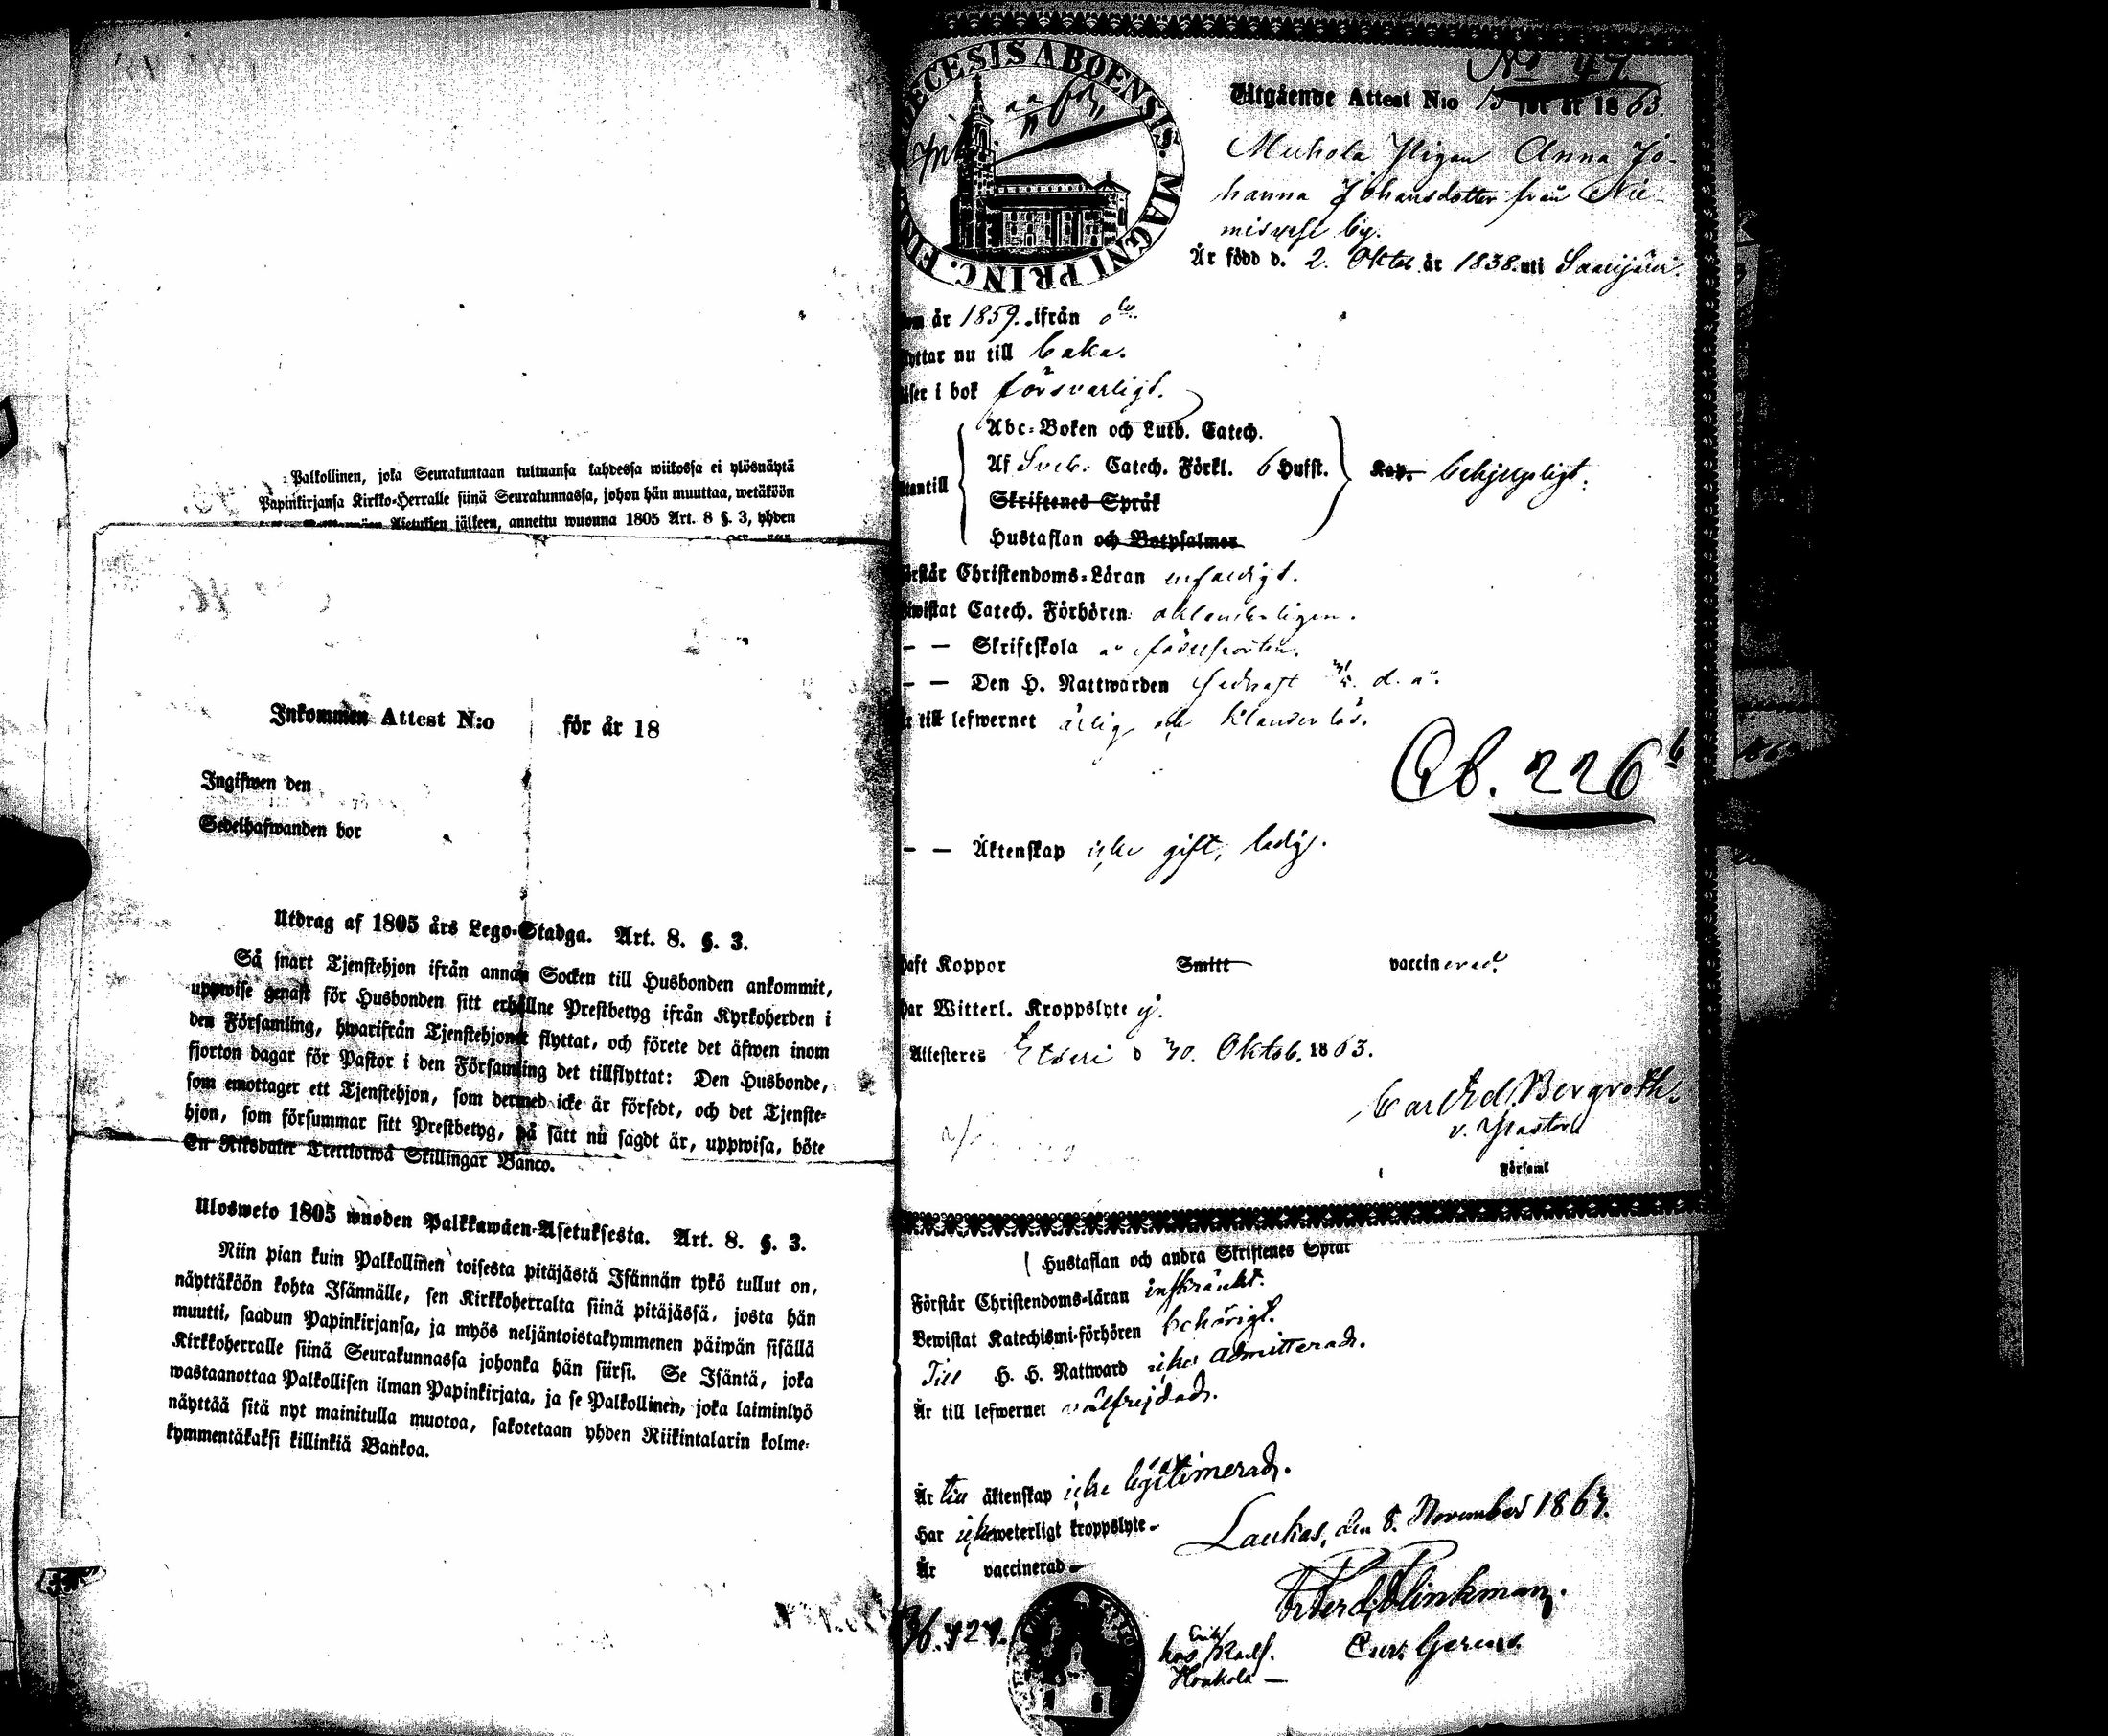 Palkollinen, joka Seurakuntaan tultuansa kahdessa wiikossa ei ylösnäytä
Papinkirjansa Kirkko-Herralle siinä Seurakunnassa, johon hän muuttaa, wetäköön
jälkeen, annettu wuonna 1805 Art. 8 §. 3, yhden
Inkommen Attest N:o för år 18
Ingifwen den
Sedelhafwanden bor
Utdrag af 1805 års Lego-Stadga. Art. 8. §. 3.
Så snart Tjenstehjon ifrån annan Socken till Husbonden ankommit,
uppwise genast för Husbonden sitt erhållne Prestbetyg ifrån Kyrkoherden i
den Församling, hwarifrån Tjenstehjonet flyttat, och förete det äfwen inom
fjorton dagar för Pastor i den Församling det tillflyttat: Den Husbonde,
som emottager ett Tjenstehjon, som dermed icke är försedt, och det Tjenste-
hjon, som försummar sitt Prestbetyg, på sätt nu sagdt är, uppwisa, böte
En Riksdaler Trettiotwå Skillingar Banco.
Ulosweto 1805 wuoden Palkkawäen-Asetuksesta. Art. 8. §. 3.
Niin pian kuin Palkollinen toisesta pitäjästä Isännän tykö tullut on,
näyttäköön kohta Isännälle, sen Kirkkoherralta siinä pitäjässä, josta hän
muutti, saadun Papinkirjansa, ja myös neljäntoistakymmenen päiwän sisällä
Kirkkoherralle siinä Seurakunnassa johonka hän siirsi. Se Isäntä, joka
wastaanottaa Palkollisen ilman Papinkirjata, ja se Palkollinen, joka laiminlyö
näyttää sitä nyt mainitulla muotoa, sakotetaan yhden Riikintalarin kolme-
kymmentäkaksi killinkiä Bankoa.
DIECESIS ABOENSIS. MAGNI PRINC. FINL.
Utgående Attest N:o 15 för år 1863.
Pigan Anna Jo-
hanna Johansdotter från Nie-
by.
Är född d. 2. Oktob. år 1838. uti Saarijärvi.
om år 1859. ifrån
flyttar nu till baka.
läser i bok försvarligt.
Abc-Boken och Luth. Catech.
Af Sveb. Catech. Förkl. 6 Hufst. Kap.
utantill
Skriftenes Språk
Hustaflan och Botpsalmer
Förstår Christendoms-Läran enfaldigt.
Bewistat Catech. Förhören oklanderligen.
— — Skriftskola
— — Den H. Nattwarden d. å.
Är till lefwernet ärlig och klanderlös.
Cb. 226 b
— — Äktenskap icke gift, ledig.
haft Koppor Smitt vaccinerad.
har Witterl. Kroppslyte ej.
Attesteres Etseri d 30. Oktob. 1863.
Carl Ed. Bergroth.
v. Pastor
Församl
Hustaflan och andra Skriftenes Språk
Förstår Christendoms-läran inskränkt.
Bewistat Katechismi-förhören behörigt.
Till H. H. Nattward icke admitterad.
Är till lefwernet välfrejdad.
Är till äktenskap icke legitimerad.
Har icke weterligt kroppslyte.
Är vaccinerad
Laukas, den 8. November 1863.
Erik
hos
Honkola